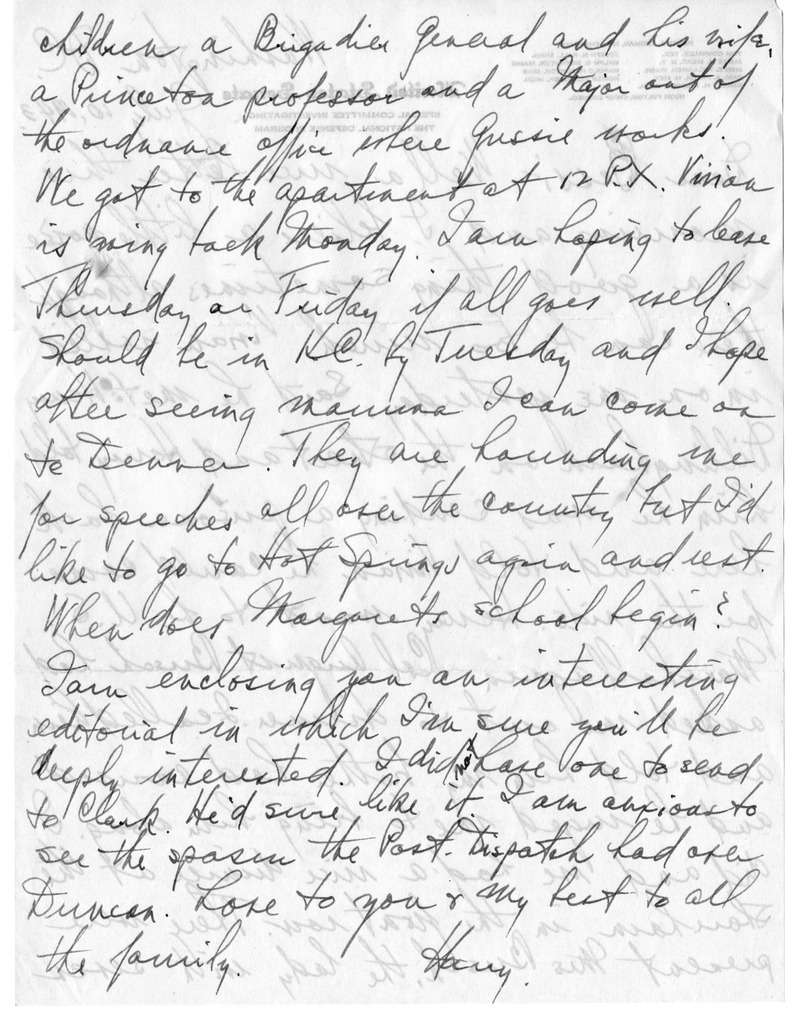 children a Brigadier General and his wife,
a Princeton professor and a Major out of
the ordnance office where Gussie works.
We got to the apartment at 12 P.X. Vivian
is going back Monday. I am hoping to leave
Thursday or Friday if all goes well.
Should be in K.C. by Tuesday and I hope
after seeing mamma I can come on
to Denver. They are hounding me
for speeches all over the country but I'd
like to go to Hot Springs again and rest.
When does Margaret's school begin?
I am enclosing you an interesting
editorial in which I'm sure you'll be
deeply interested. I did not have one to send
to Clark. He'd sure like it. I am anxious to
see the spasm the Post-Dispatch had over
Duncan. Love to you & my best to all
the family. Harry.